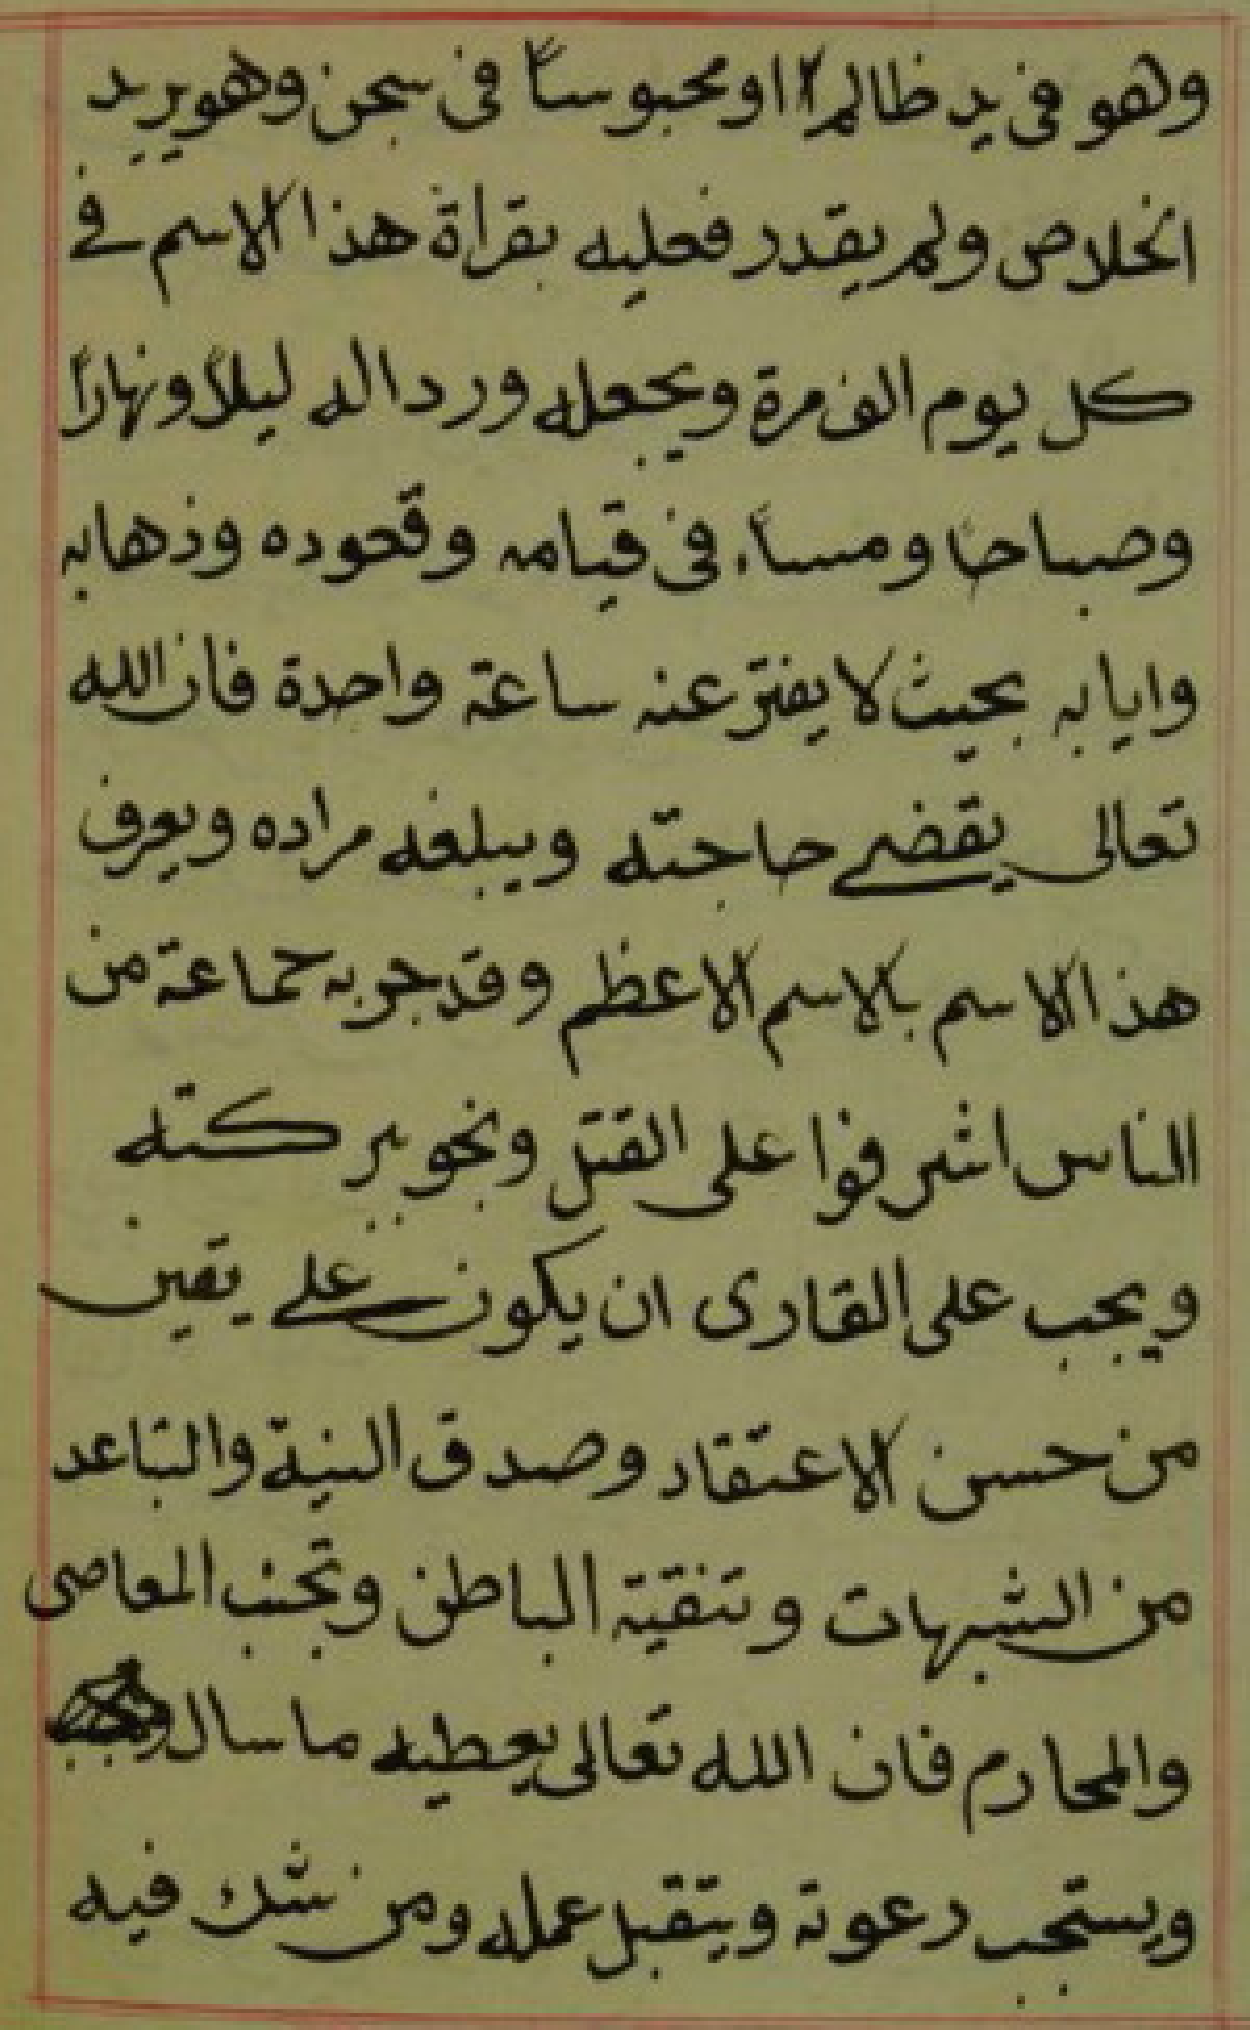 وهو في يد ظالم اومحبوساً في سجن وهويريد
الخلاص ولم يقدر فعليه بقراة هذا الاسم في
كل يوم الف مرة ويجعله وردا له ليلاً ونهاراً
وصباحاً ومساً، في قيامه وقعوده وذهابه
وايابه بحيث لا يفتر عنه ساعة واحدة فان الله
تعالى يقضي حاجته ويبلغه مراده ويعرف
هذا الاسم بالاسم الاعظم وقد جربه جماعة من
الناس اشرفوا على القتل ونجو ببركته
ويجب على القارى ان يكون على يقين
من حسن الاعتقاد وصدق النية والتباعد
من الشبهات وتنقية الباطن وتجنب المعاصى
والمحارم فان الله تعالى يعطيه ما سال
ويستجب دعوته ويتقبل عمله ومن شك فيه